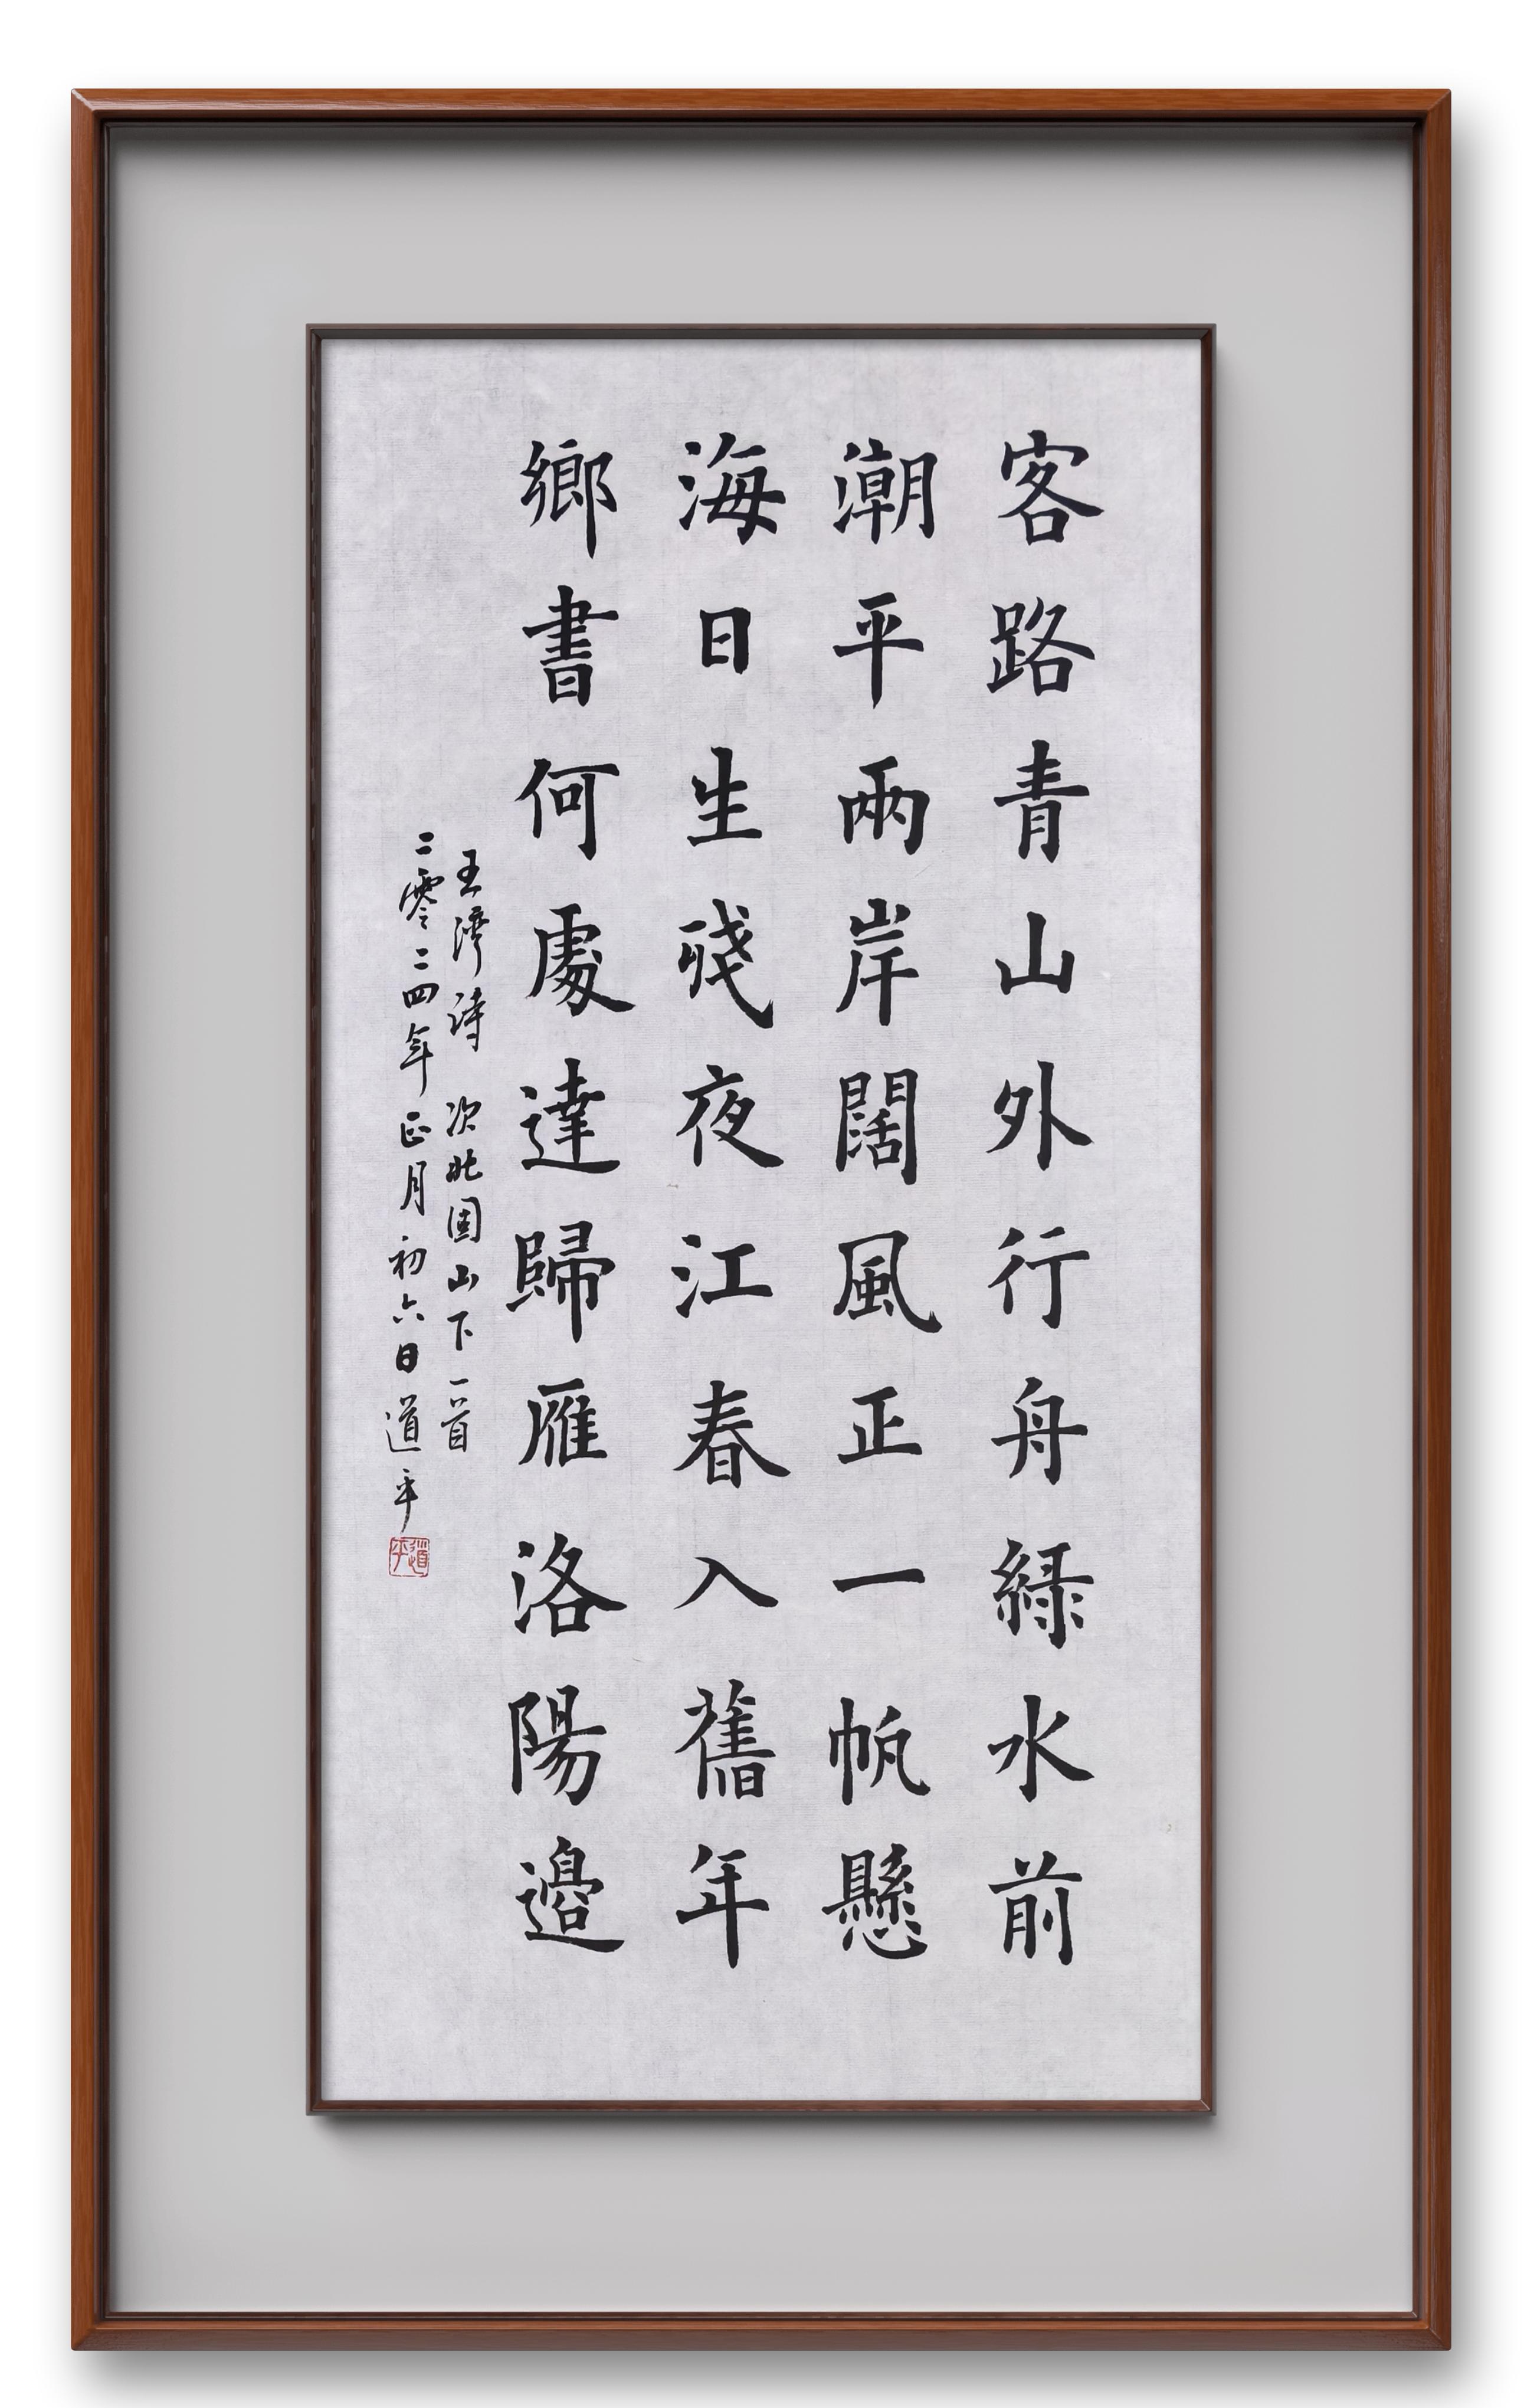 客路青山外行舟緑水前
潮平兩岸闊風正一帆懸
海日生殘夜江春入舊年
鄉書何處達歸雁洛陽邊
王灣詩 次北固山下一首
二零二四年正月初六日道平
道平